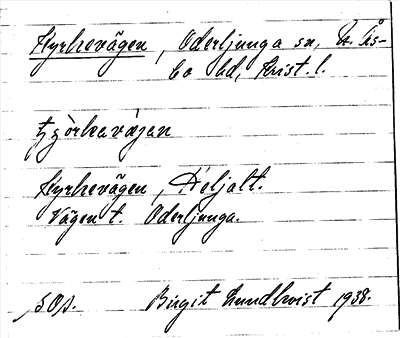 Kyrkevägen, Oderljunga sn, N. Ås-
bo hd, Krist. l.
tjörkavägan
Kyrkevägen, Höljalt.
Vägen t. Oderljunga.
s. Os. Birgit Lundkvist 1938.